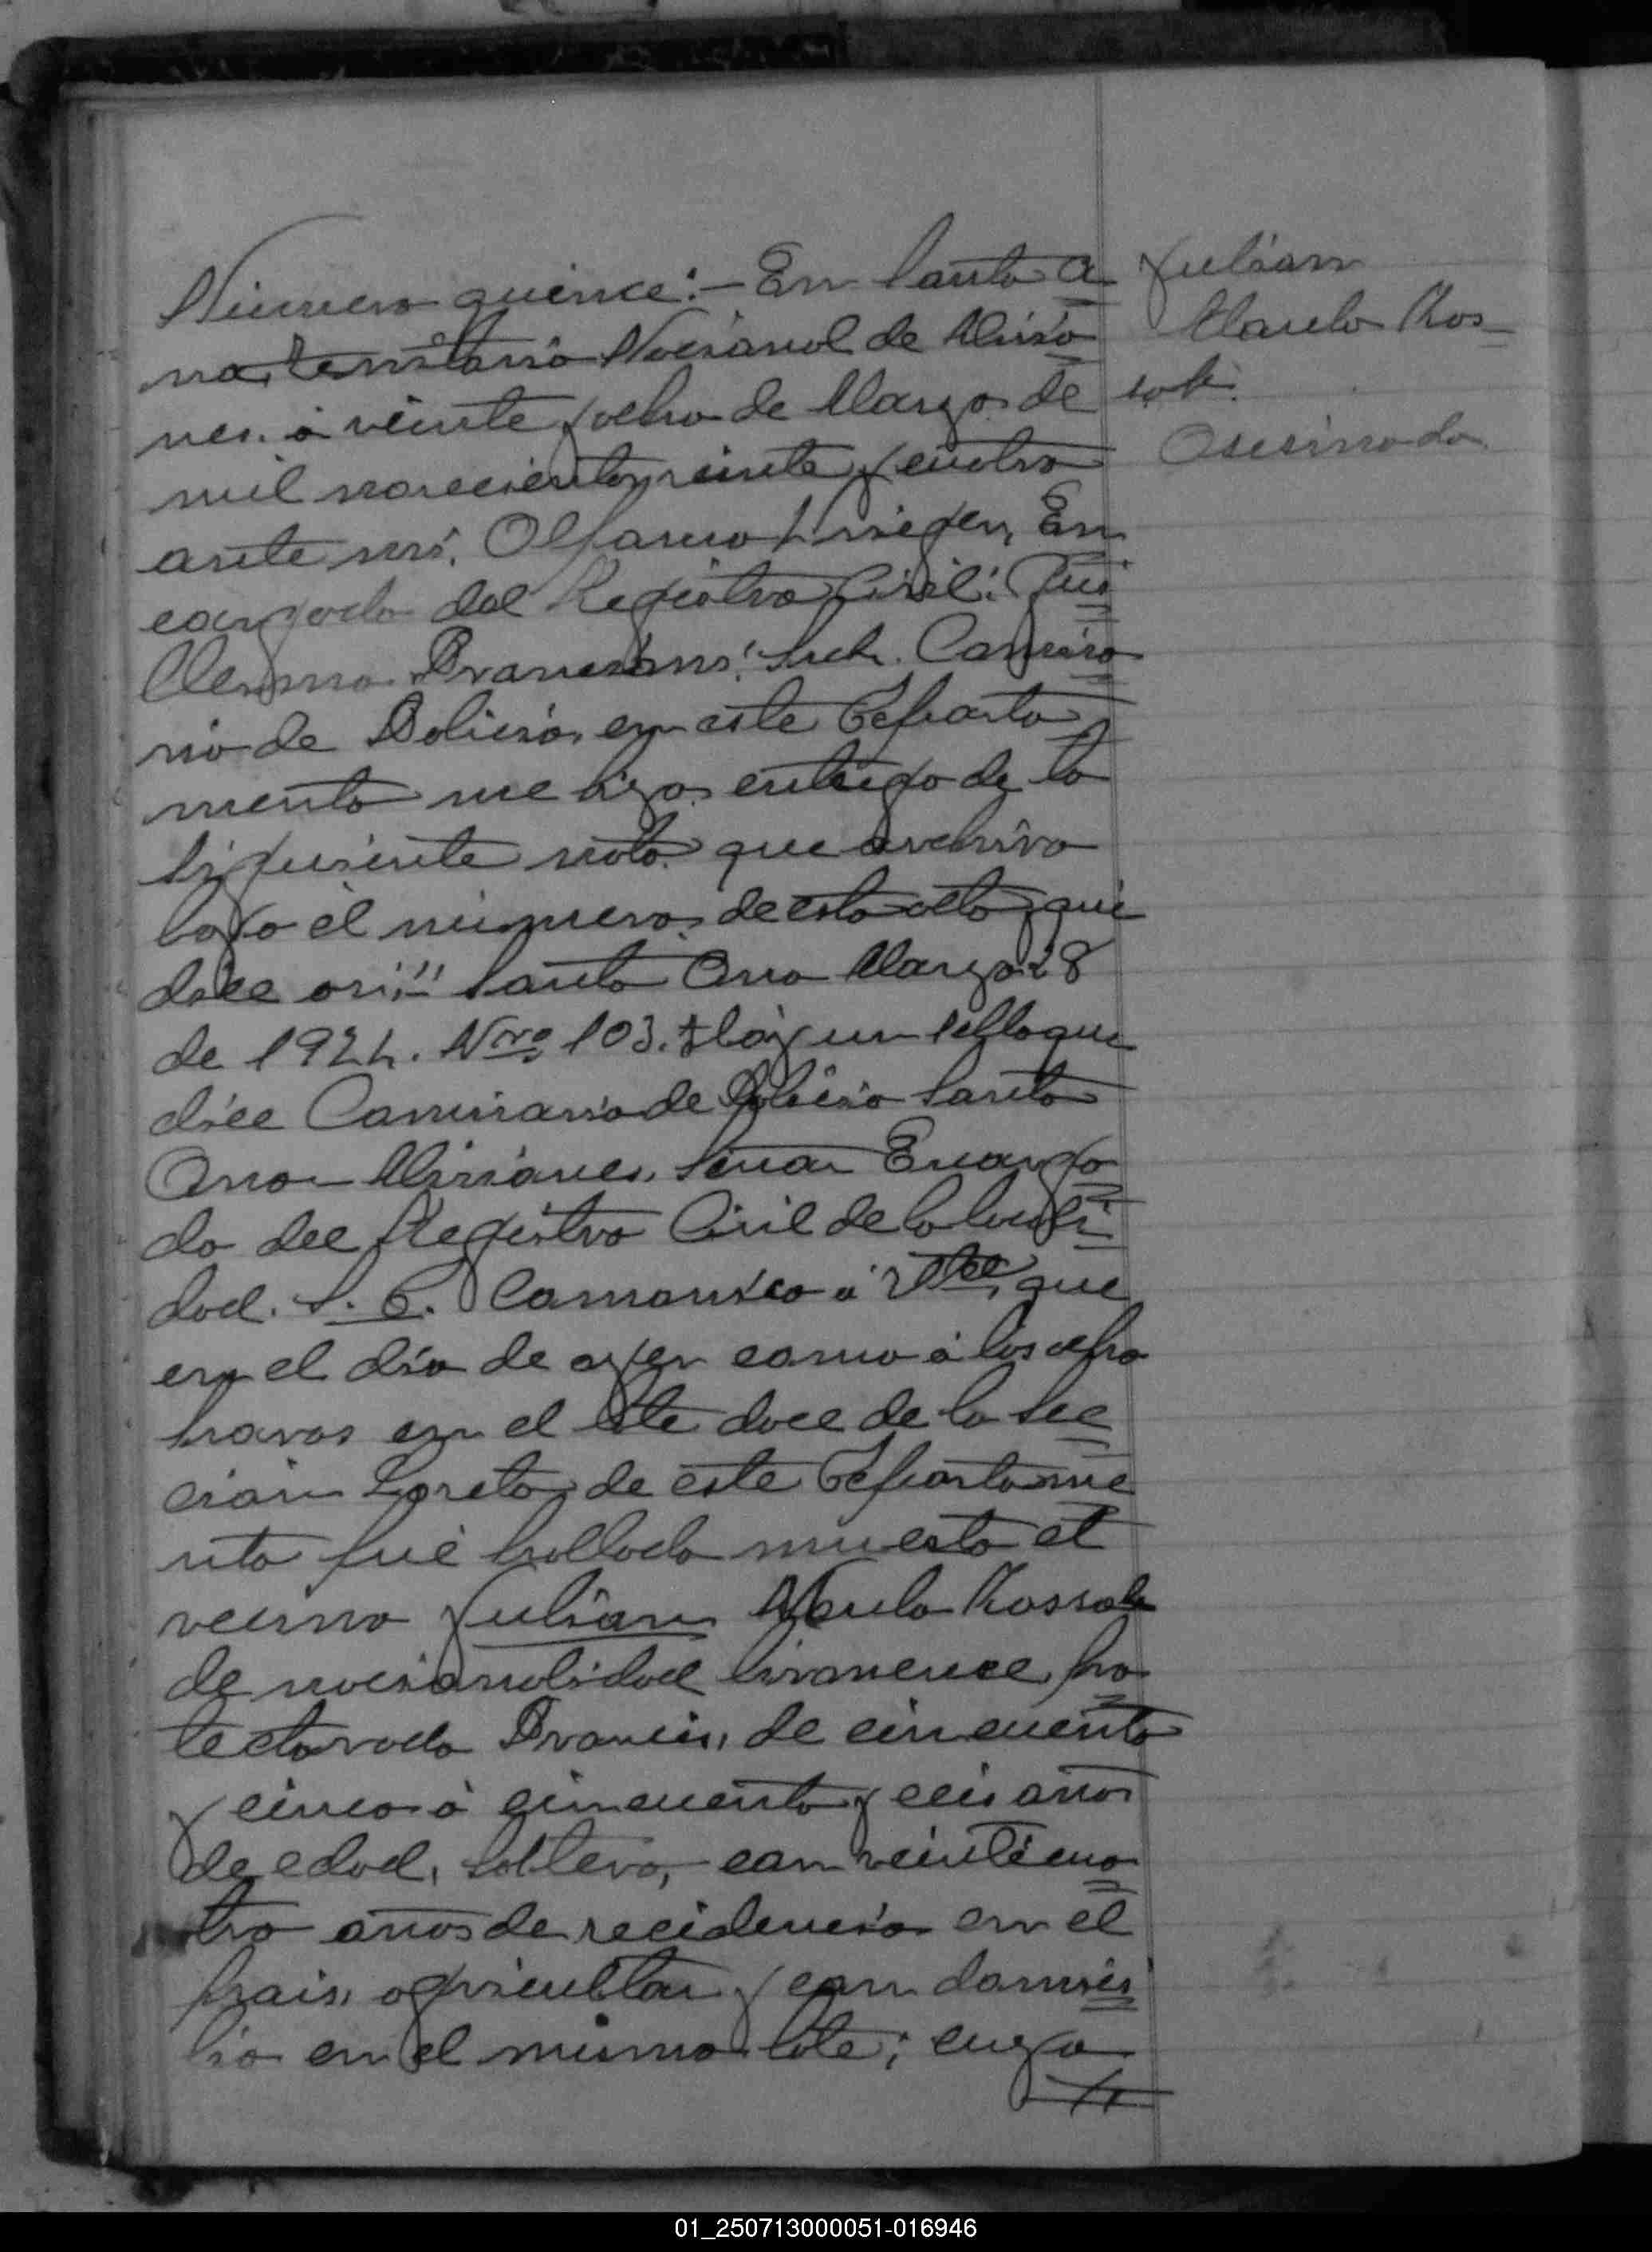 Número quince:- En Santa A
na, territorio Nacional de Misio
nes, a veinte y ocho de Marzo de
mil novecientos veinte y cuatro
ante mí, En
cargado del Registro Civil: Gui
llermo Sub. Comisa
rio de Policia, en este Departa
mento me hizo entrega de la
siguiente nota que archivo
bajo el número de esta acta, que
dice asi:" Santa Ana Marzo 28
de 1924. Nro 103. Hay un sello que
dice Comisaria de Policia Santa
Ana - Misiones. Señor Encarga
do del Registro Civil de la locali
dad. S. D. Comunico a Vd. que
en el día de ayer como a las ocho
horas en el lote doce de la Sec
ción Loreto, de este Departame
nto fué hallado muerto el
vecino Julian
de nacionalidad pro
tectorado Francis, de cincuenta
y cinco a cincuenta y seis años
de edad, soltero, con veinticua
tro años de recidencia en el
pais, agricultor y con domici
lio en el mismo lote; cuya
//
Julian
Asesinado